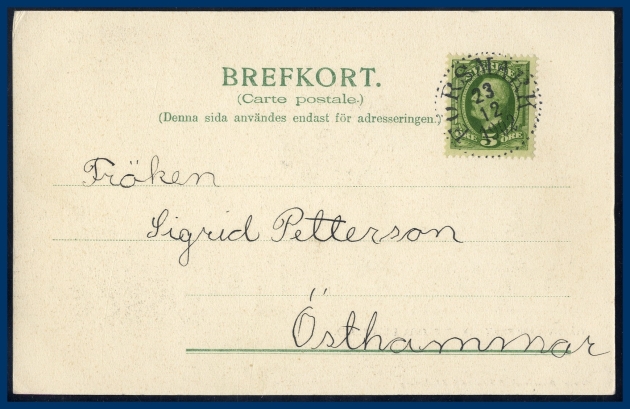 BREFKORT.
(Carte postale.)
(Denna sida användes endast för adresseringen.)
FORSMARK
23
12
5 ÖRE
Fröken
Sigrid Petterson
Östhammar